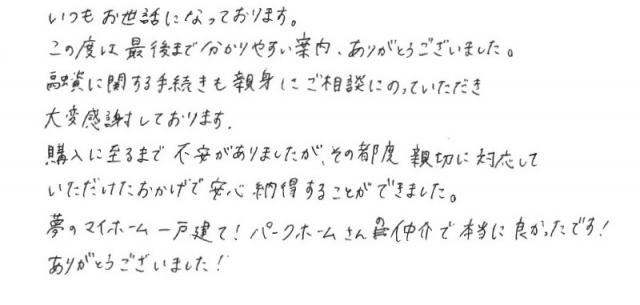 いつもお世話になっております。
この度は最後まで分かりやすい案内、ありがとうございました。
融資に関する手続きも親身にご相談にのっていただき
大変感謝しております.
購入に至るまで不安がありましたが、その都度 親切に対応して
いただけたおかげで安心納得することができました。
夢のマイホーム一戸建て!パークホームさんの仲介で本当に良かったです!
ありがとうございました!